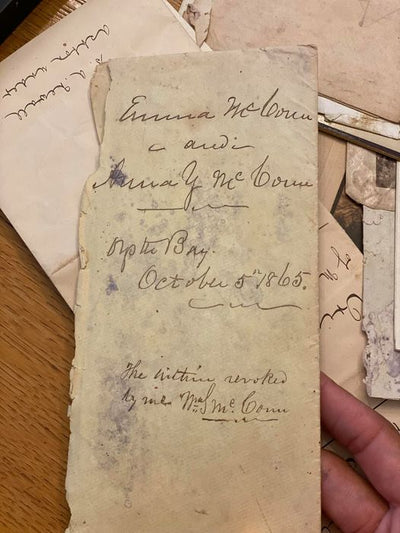 Emma McConn
and
Anna Y McConn
Bay.
October 5th 1865.
The within revoked
by me Wm S McConn